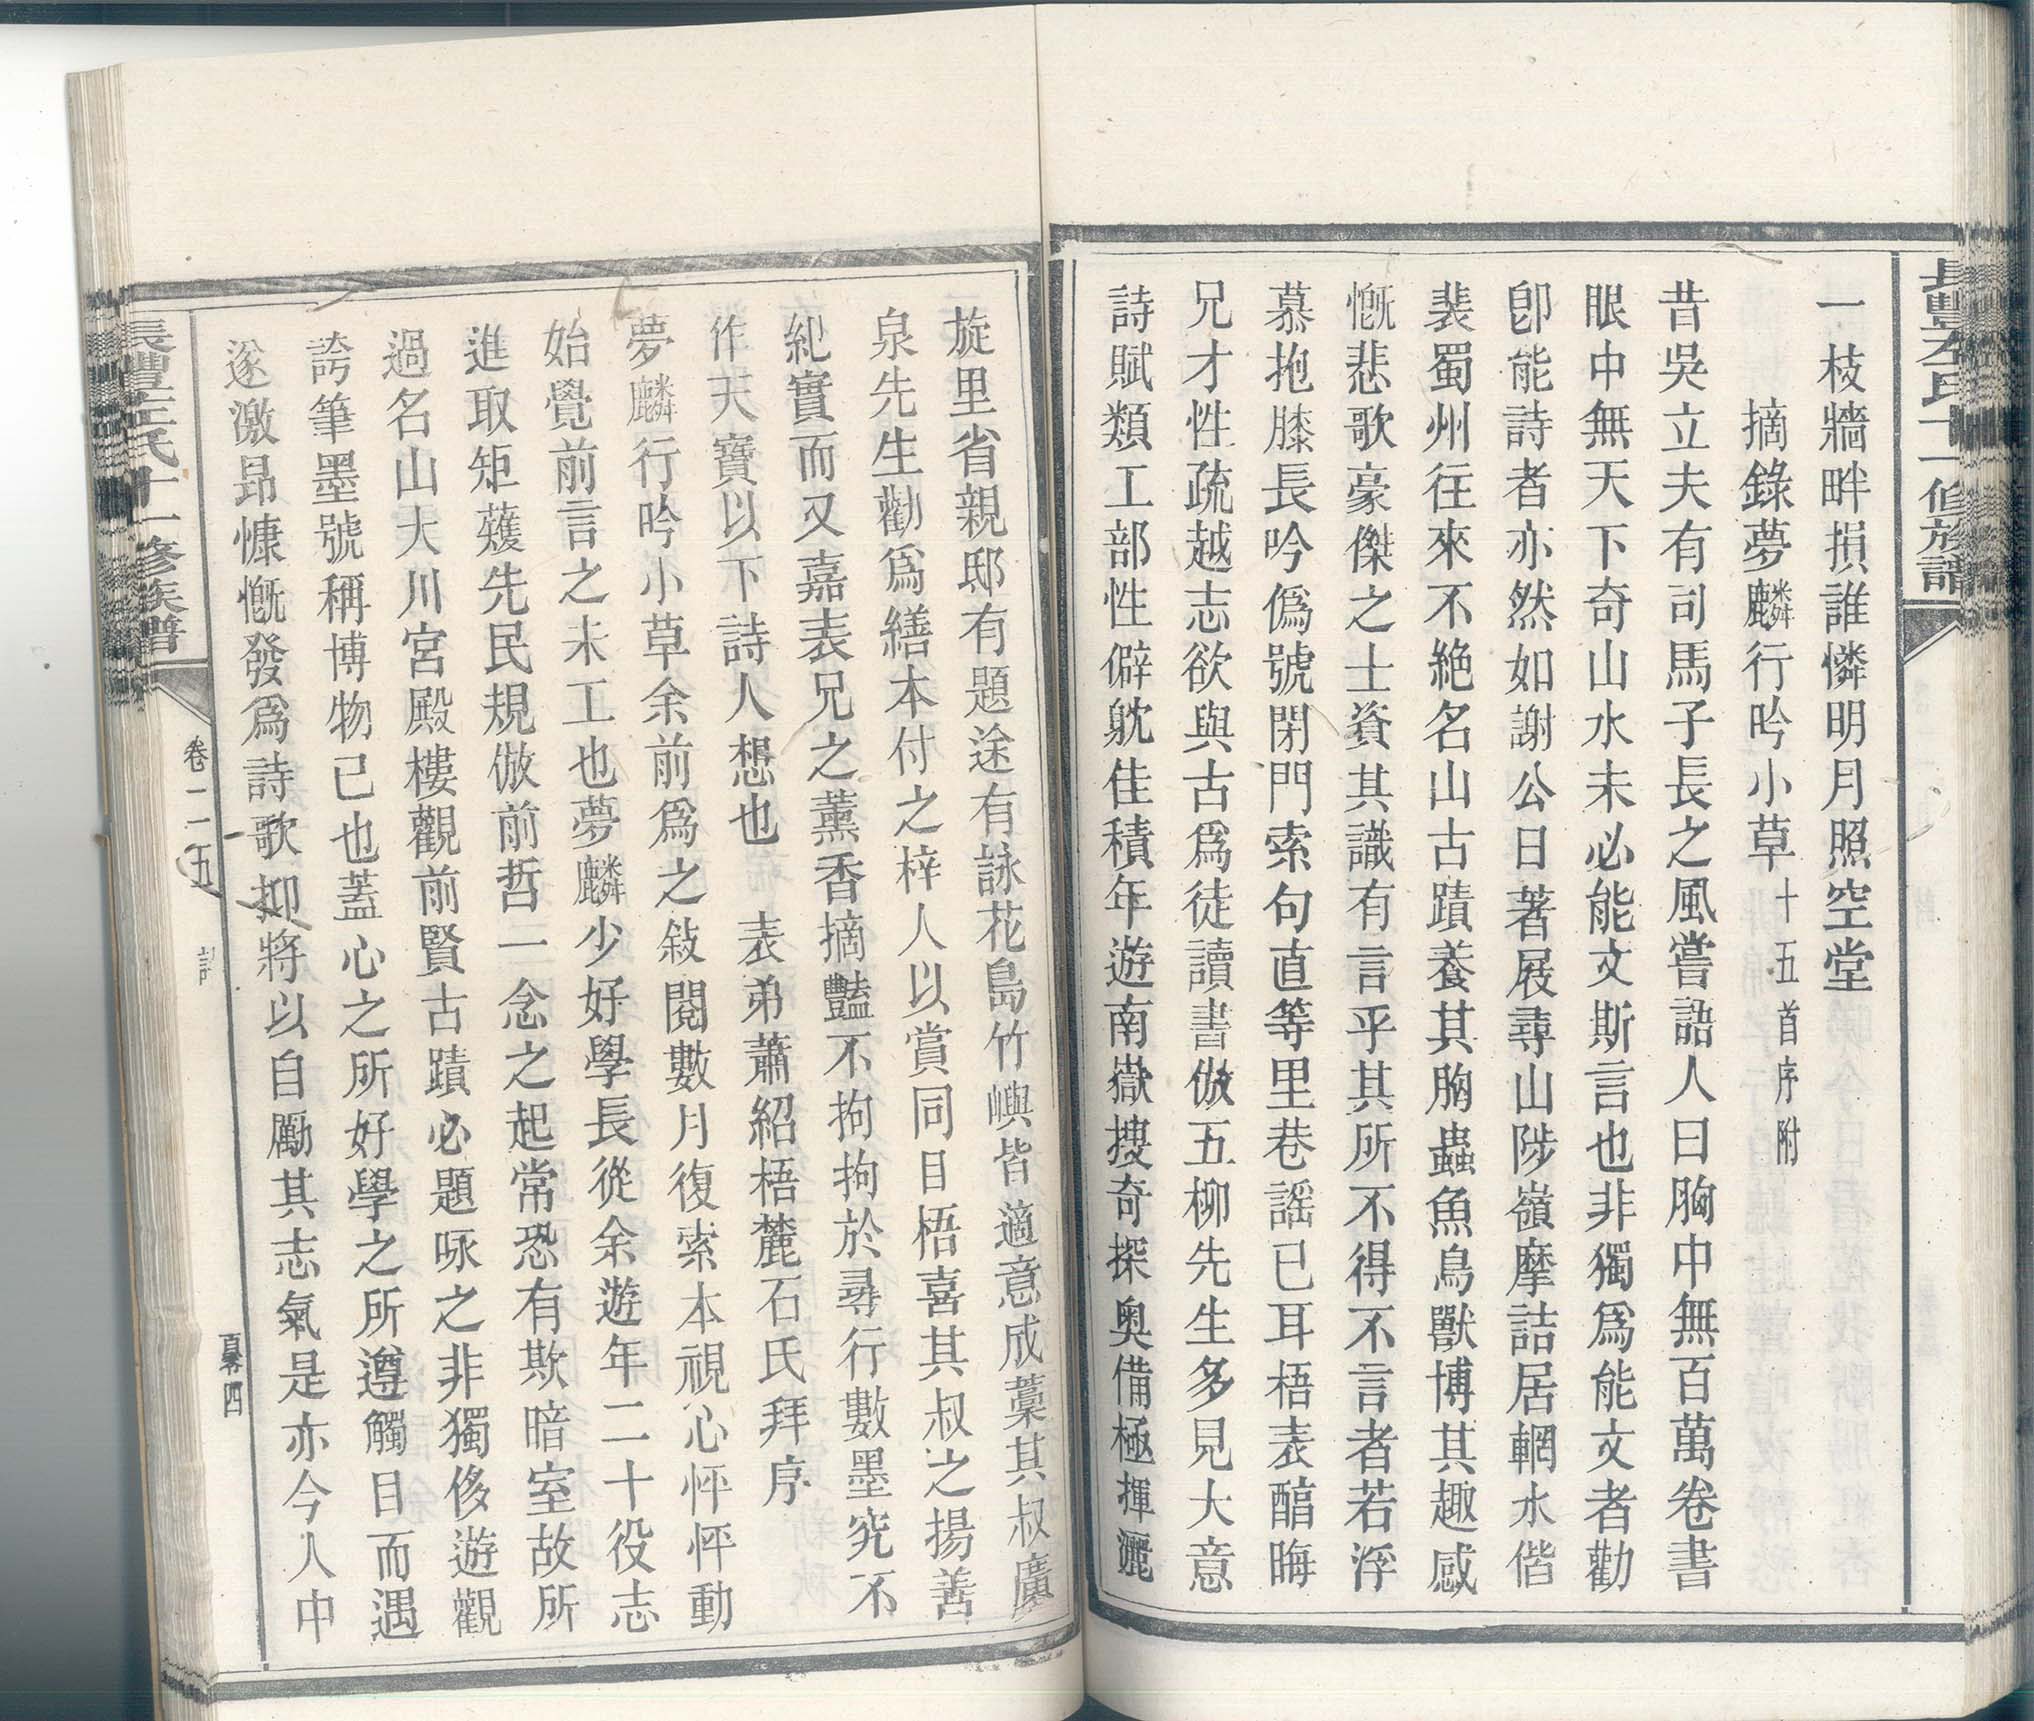 長豐左氏十一修族譜
一枝牆畔損誰憐明月照空堂
摘錄夢麟行吟小草十五首序附
昔吳立夫有司馬子長之風嘗語人曰胸中無百萬卷書
眼中無天下奇山水未必能文斯言也非獨為能文者勸
卽能詩者亦然如謝公日著屐尋山陟嶺摩詰居輞水偕
裴蜀州往來不絕名山古蹟養其胸蟲魚鳥獸博其趣感
慨悲歌豪傑之士資其識有言乎其所不得不言者若浮
慕抱膝長吟僞號閉門索句直等里巷謠已耳梧表醕晦
兄才性疏越志欲與古爲徒讀書倣五柳先生多見大意
詩賦類工部性僻躭佳積年遊南嶽搜奇探奧備極揮灑
旋里省親邸有題途有詠花島竹嶼皆適意成藁其叔廣
泉先生勸爲繕本付之梓人以賞同目梧喜其叔之揚善
紀實而又嘉表兄之薰香摘豔不拘拘於尋行數墨究不
作天寶以下詩人想也　表弟蕭紹梧麓石氏拜序
夢麟行吟小草余前爲之敍閱數月復索本視心怦怦動
始覺前言之未工也夢麟少好學長從余遊年二十役志
進取矩蒦先民規倣前哲一念之起常恐有欺暗室故所
過名山大川宮殿樓觀前賢古蹟必題咏之非獨侈遊觀
誇筆墨號稱博物已也蓋心之所好學之所遵觸目而遇
遂激昂慷慨發爲詩歌抑將以自勵其志氣是亦今人中
長豐左氏十一修族譜
卷二五
百零四